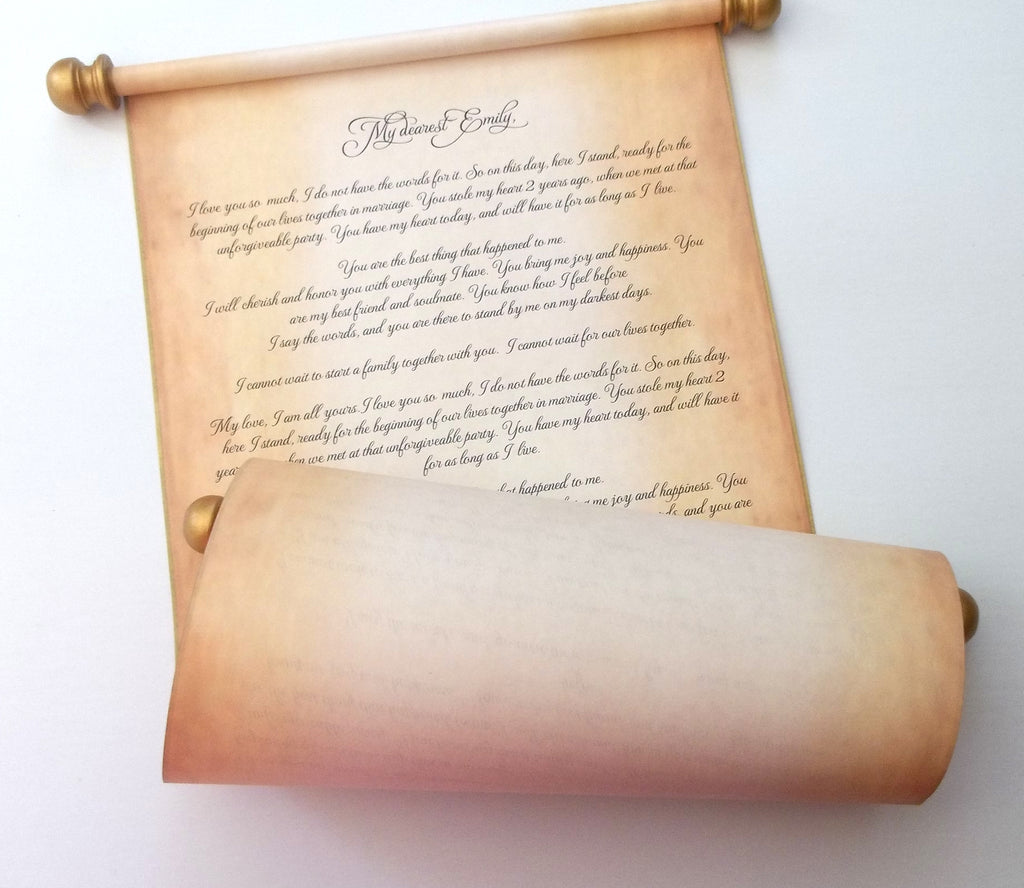 My dearest Emily,
I love you so much, I do not have the words for it. So on this day, here I stand, ready for the
beginning of our lives together in marriage. You stole my heart 2 years ago, when we met at that
unforgiveable party. You have my heart today, and will have it for as long as I live.
You are the best thing that happened to me.
I will cherish and honor you with everything I have. You bring me joy and happiness. You
are my best friend and soulmate. You know how I feel before
I say the words, and you are there to stand by me on my darkest days.
I cannot wait to start a family together with you. I cannot wait for our lives together.
My love, I am all yours.I love you so much, I do not have the words for it. So on this day,
here I stand, ready for the beginning of our lives together in marriage. You stole my heart 2
we met at that unforgiveable party. You have my heart today, and will have it
for as long as I live.
happened to me.
me joy and happiness. You
and you are